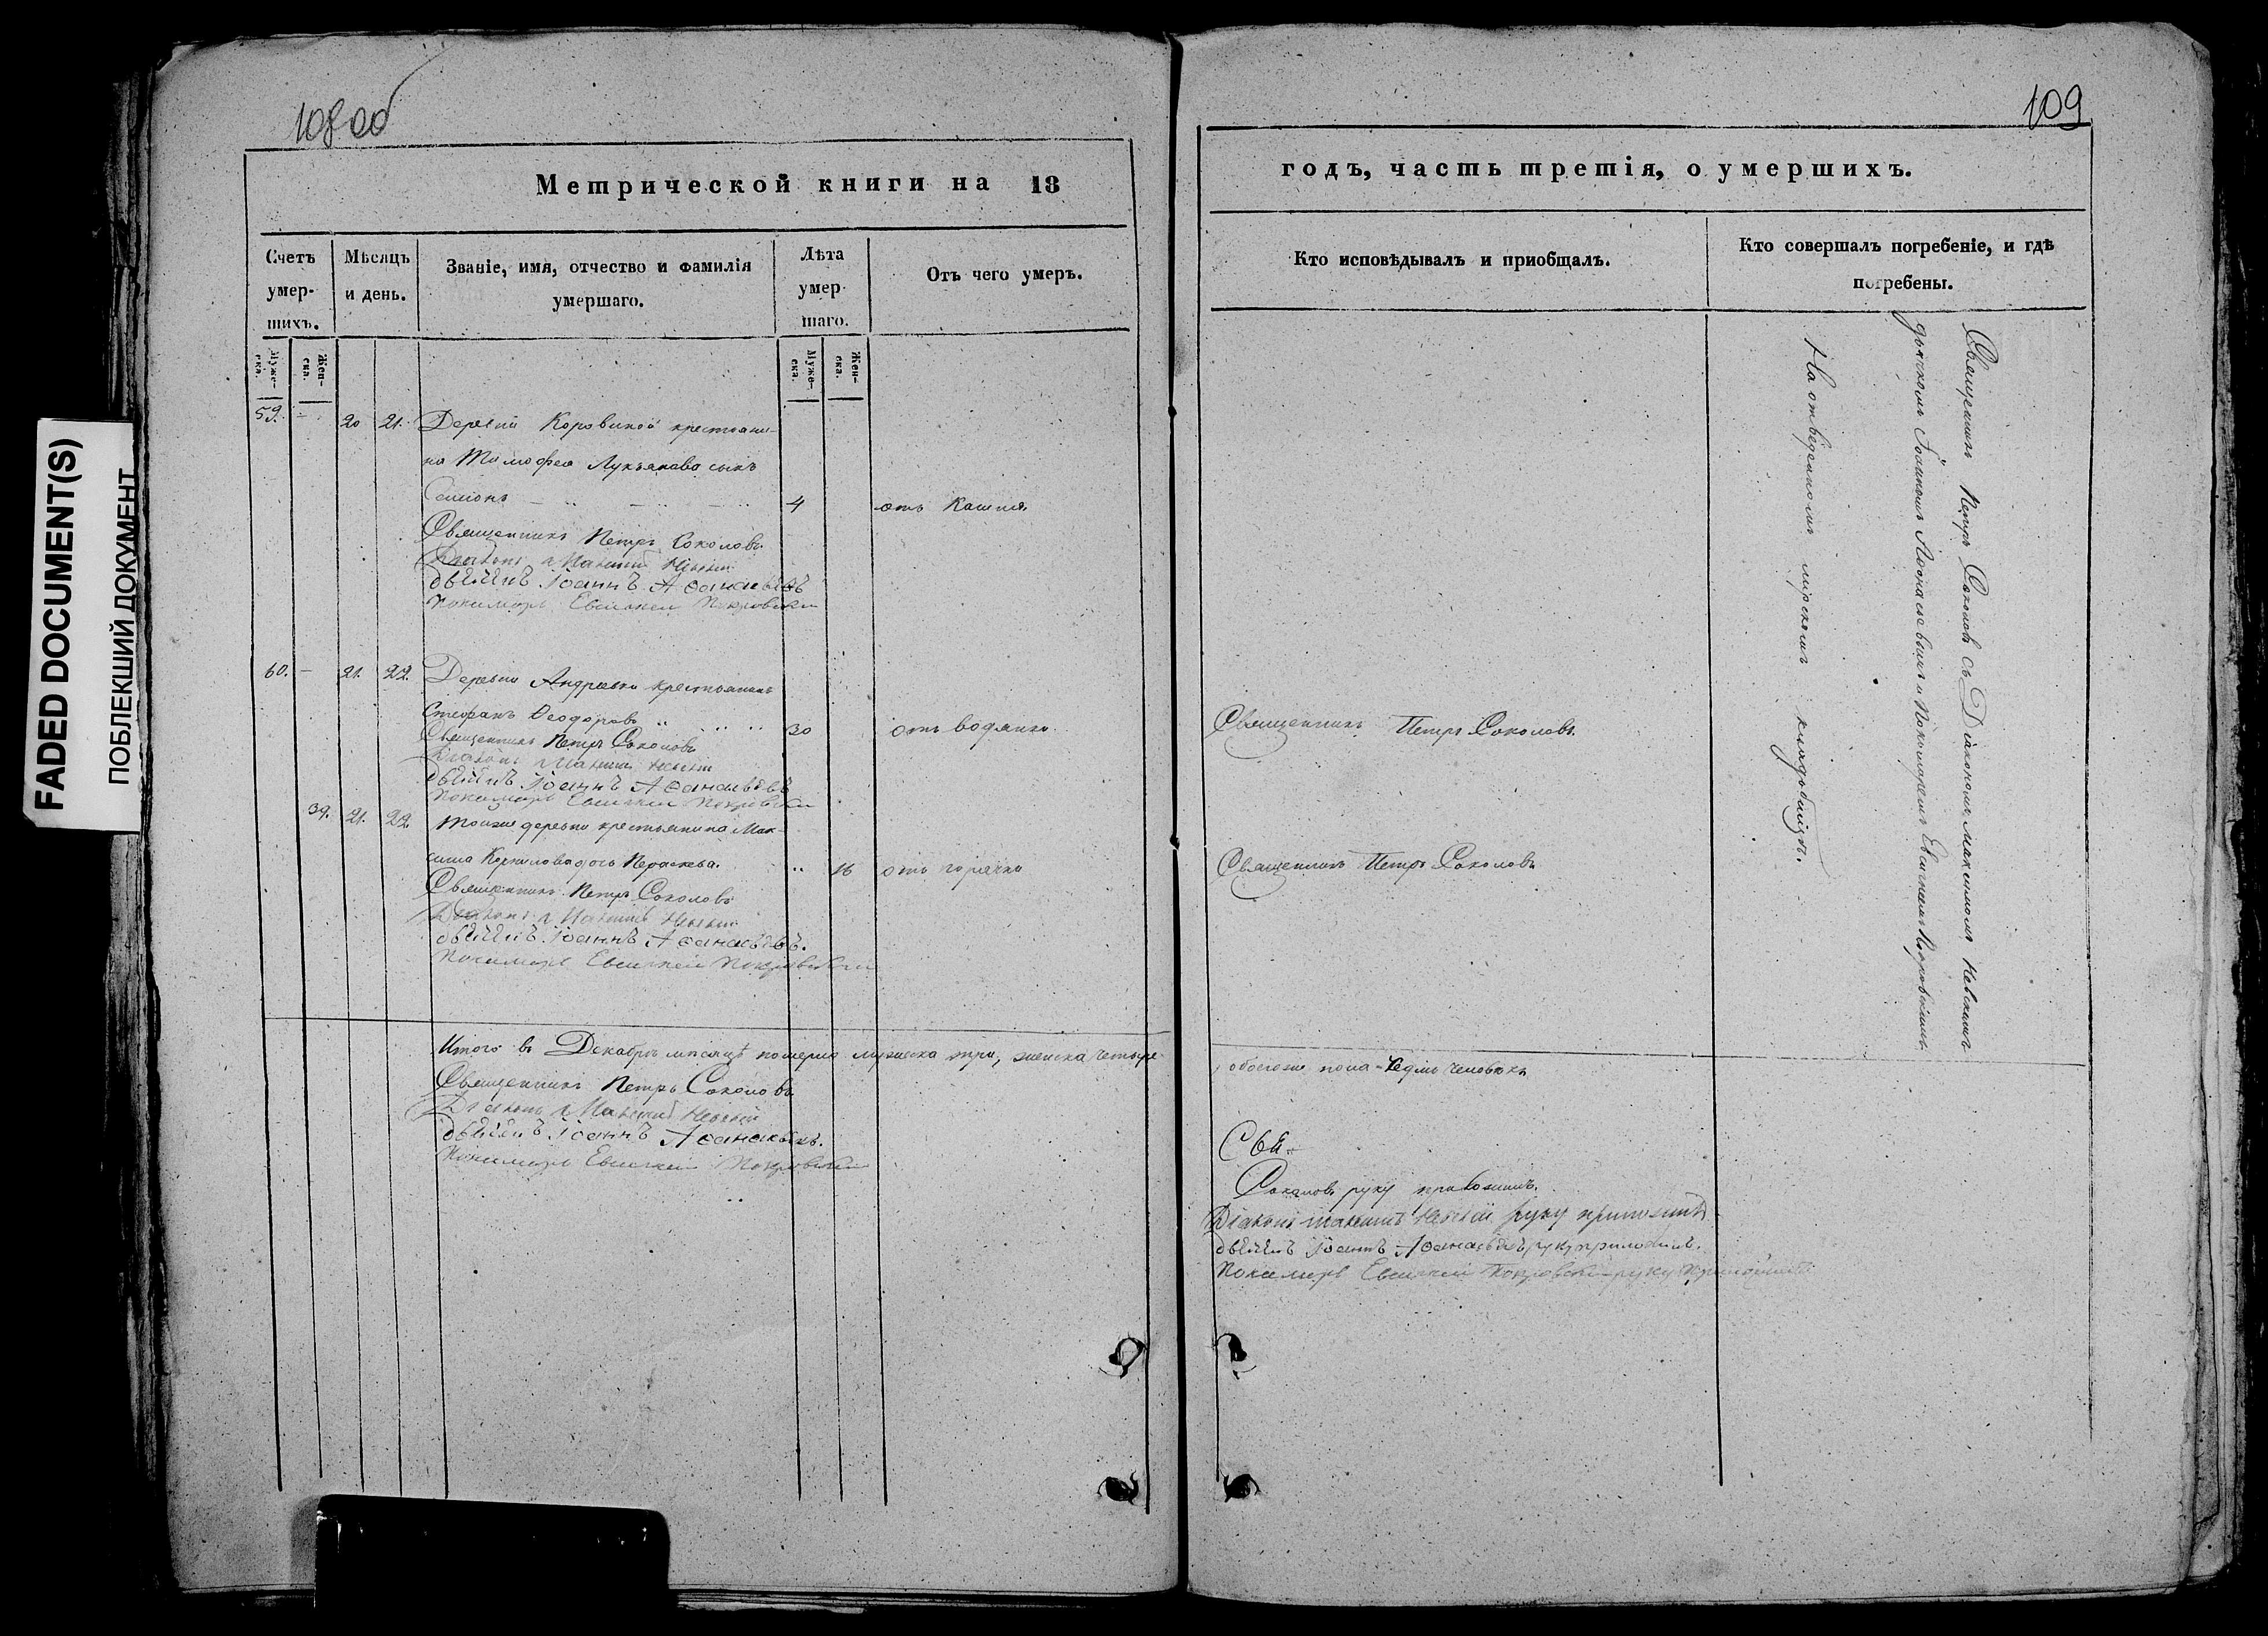 FADED DOCUMENT(S)
ПОБЛЕКШИЙ ДОКУМЕНТ
108 об
Метрической книги на 18
Счетъ умер-шихъ.
Мѣсяцъ и день.
Званіе, имя, отчество и фамилія умершаго.
Лѣта умер-шаго.
Отъ чего умеръ.
Муже-ска.
Жен-ска.
Муже-ска.
Жен-ска.
59. - 20 21. Деревни Коровиной крестьяни-
на Тимофея Лукьянова сынъ
Симеонъ 4 отъ кашля
Священникъ Петръ Соколовъ
Діаконъ Максимъ Невскій
дьячёкъ Іоаннъ Аѳанасьевъ
Пономарь Евгеній Покровскій
60. - 21. 22. Деревни Андреевки крестьянинъ
Стефанъ Ѳеодоровъ 30 отъ водянки
Священникъ Петръ Соколовъ
Діаконъ Максимъ Невскій
дьячёкъ Іоаннъ Аѳанасьевъ
Пономарь Евгеній Покровскій
39. 21. 22. Тойже деревни крестьянина Мак-
сима Корнилова дочь Параскева. 16 отъ горячки
Священникъ Петръ Соколовъ
Діаконъ Максимъ Невскій
дьячёкъ Іоаннъ Аѳанасьевъ.
Пономарь Евгеній Покровскій
Итого въ Декабрѣ мѣсяцѣ померло мужеска три, женска четыре
Священникъ Петръ Соколовъ
Діаконъ Максимъ Невскій
дьячёкъ Іоаннъ Аѳанасьевъ.
Пономарь Евгеній Покровскій
109
годъ, часть третія, о умершихъ.
Кто исповѣдывалъ и приобщалъ.
Кто совершалъ погребеніе, и гдѣ погребены.
Священникъ Петръ Соколовъ съ Діакономъ Максимомъ Невскимъ
дьячкомъ Іоанномъ Аѳонасьевымъ и Пономаремъ Евгеніемъ Покровскимъ.
На отведенномъ мірскомъ кладьбищѣ.
Священникъ Петръ Соколовъ
Священникъ Петръ Соколовъ
обоегоже пола седмь человѣкъ
Свя.
Соколовъ руку приложилъ.
Діаконъ Максимъ Невскій руку приложилъ
дьячёкъ Іоаннъ Аѳанасьевъ руку приложилъ.
Пономарь Евгеній Покровскій руку приложилъ